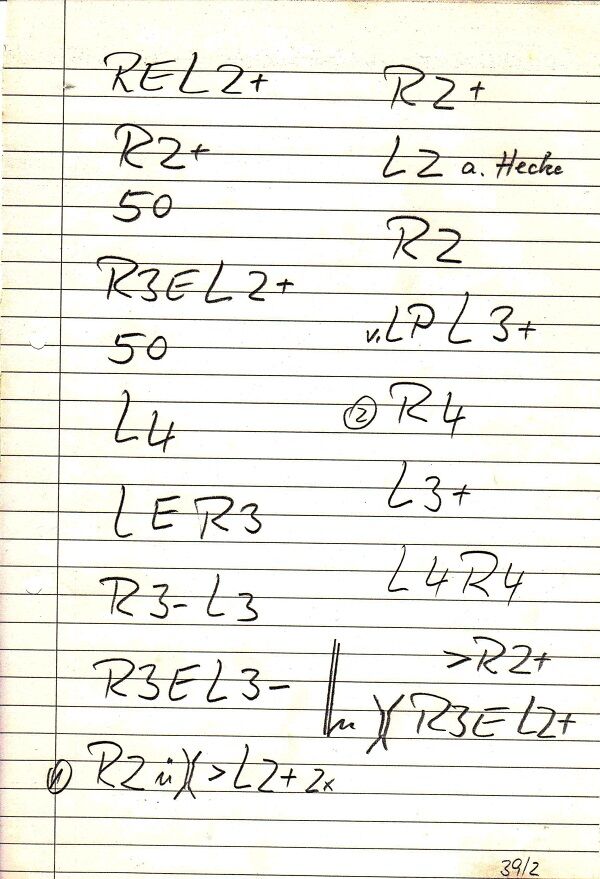 REL2+
R2+
50
R3EL2+
50
L4
LER3
R3-L3
R3EL3-
① R2 ü)( >L2+ 2x
R2+
L2 a. Hecke
R2
v. LP L3+
② R4
L3+
L4R4
>R2+
ü )( R3EL2+
39/2